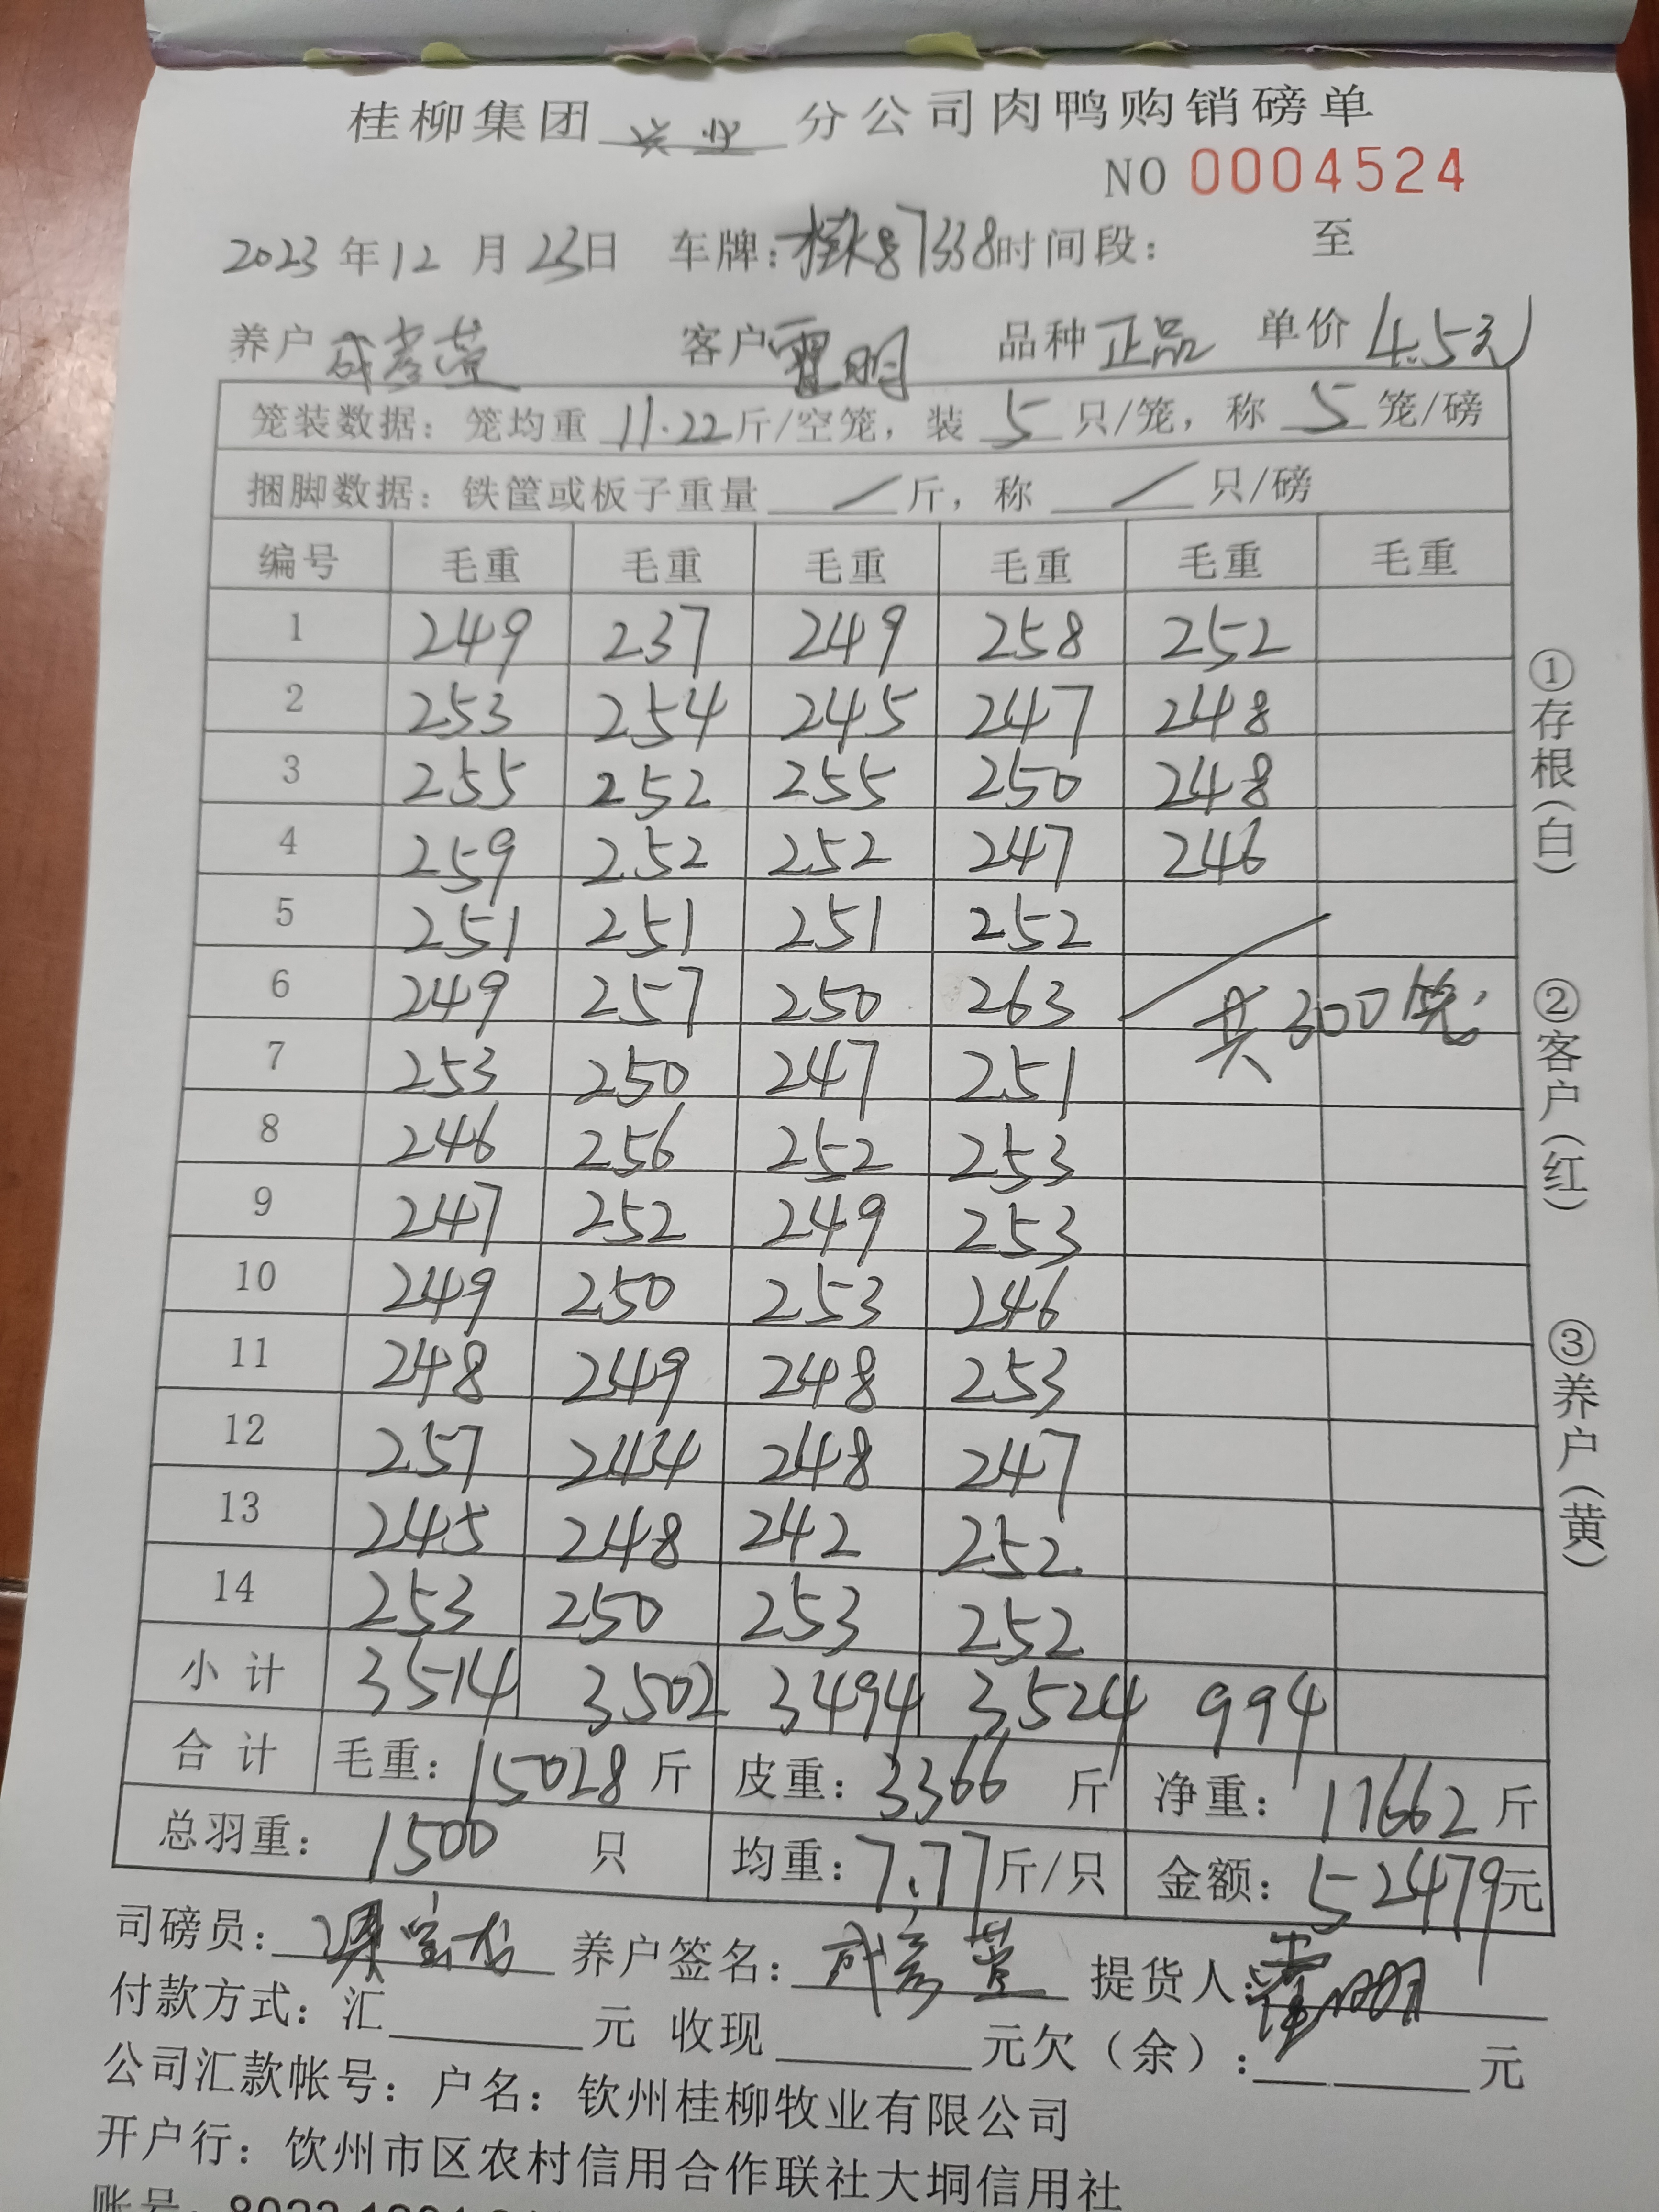 桂柳集团 兴业 分公司肉鸭购销磅单
NO 0004524
2023年12月23日 车牌:桂K87338时间段: 至
养户 客户 霍明 品种 正品 单价 (4.5元)
笼装数据: 笼均重 11.22斤/空笼, 装 5 只/笼, 称 5 笼/磅
捆脚数据: 铁筐或板子重量 / 斤, 称 / 只/磅
编号 毛重 毛重 毛重 毛重 毛重 毛重
1 249 237 249 258 252
2 253 254 245 247 248
3 255 252 255 250 248
4 259 252 252 247 246
5 251 251 251 252
6 249 257 250 263 共300笼
7 253 250 247 251
8 246 256 252 253
9 247 252 249 253
10 249 250 253 246
11 248 249 248 253
12 257 244 248 247
13 245 248 242 252
14 253 250 253 252
小计 3514 3502 3494 3524 994
合计 毛重: 15028 斤 皮重: 3366 斤 净重: 11662 斤
总羽重: 1500 只 均重: 7.77斤/只 金额: 52479元
司磅员: 养户签名: 提货人: 霍明
付款方式: 汇 元 收现 元欠(余): 元
公司汇款帐号: 户名: 钦州桂柳牧业有限公司
开户行: 钦州市区农村信用合作联社大垌信用社
账号:
①存根(白) ②客户(红) ③养户(黄)